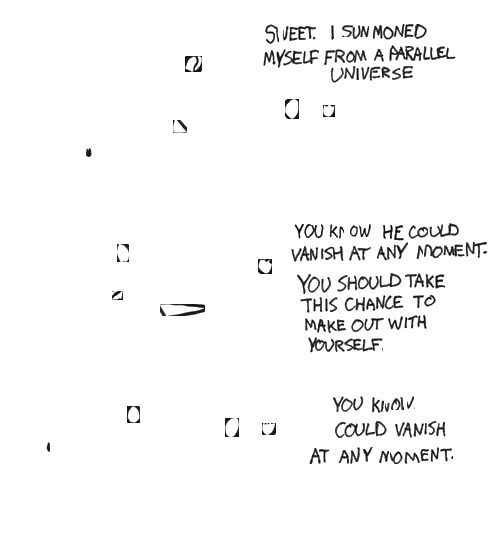 SWEET. I SUMMONED
MYSELF FROM A PARALLEL
UNIVERSE
YOU KNOW HE COULD
VANISH AT ANY MOMENT.
YOU SHOULD TAKE
THIS CHANCE TO
MAKE OUT WITH
YOURSELF.
YOU KNOW.
COULD VANISH
AT ANY MOMENT.